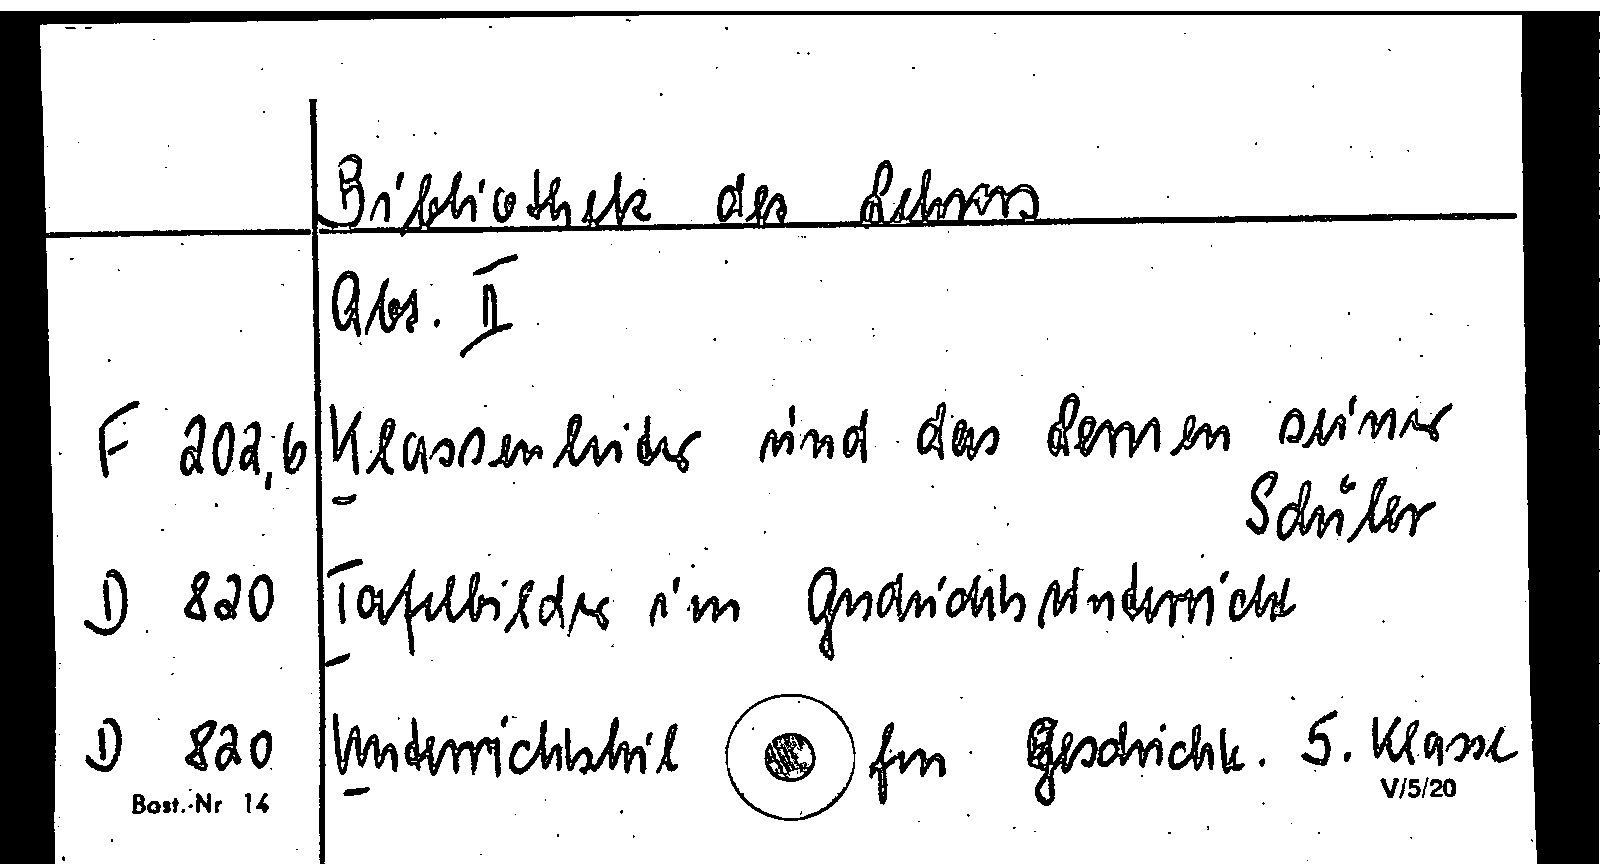 Bibliothek des Lehrers
Abs. II
F 202,6 Klassenleiter und das Lernen seiner
Schüler
D 820 Tafelbilder im Geschichtsunterricht
D 820 Unterrichtshil für Geschichte. 5. Klasse
Best.-Nr 14 V/5/20